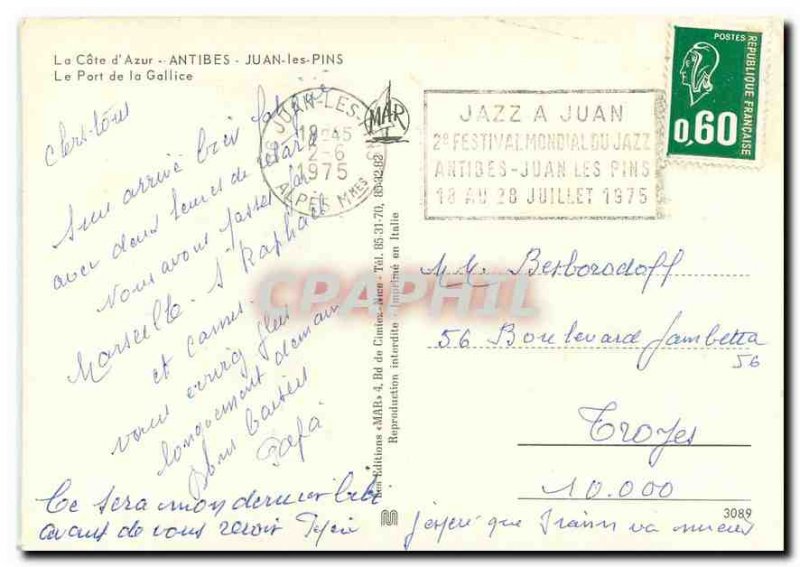 La Côte d'Azur - ANTIBES - JUAN-les-PINS
Le Port de la Gallice
chers tous
Suis arrivé bien
avec deux heures de retard
Nous avons passer
Marseille St Raphaël
et Cannes
vous plus
longuement demain
Bons Baisers
Papa
Ce sera mon dernier
avant de vous revoir
j'espère que va mieux
JUAN-LES-
18 45
2-6
1975
ALPES Mmes
MAR
JAZZ A JUAN
2e FESTIVAL MONDIAL DU JAZZ
ANTIBES-JUAN LES PINS
18 AU 28 JUILLET 1975
POSTES
REPUBLIQUE FRANÇAISE
0,60
Les Editions «MAR» 4, Bd de Cimiez - Nice - Tél. 85-31-70, 85-32-82
Reproduction interdite - Imprimé en Italie
CPAPHIL
M.M. Besborodoff
56 Boulevard Gambetta
56
Troyes
10.000
3089